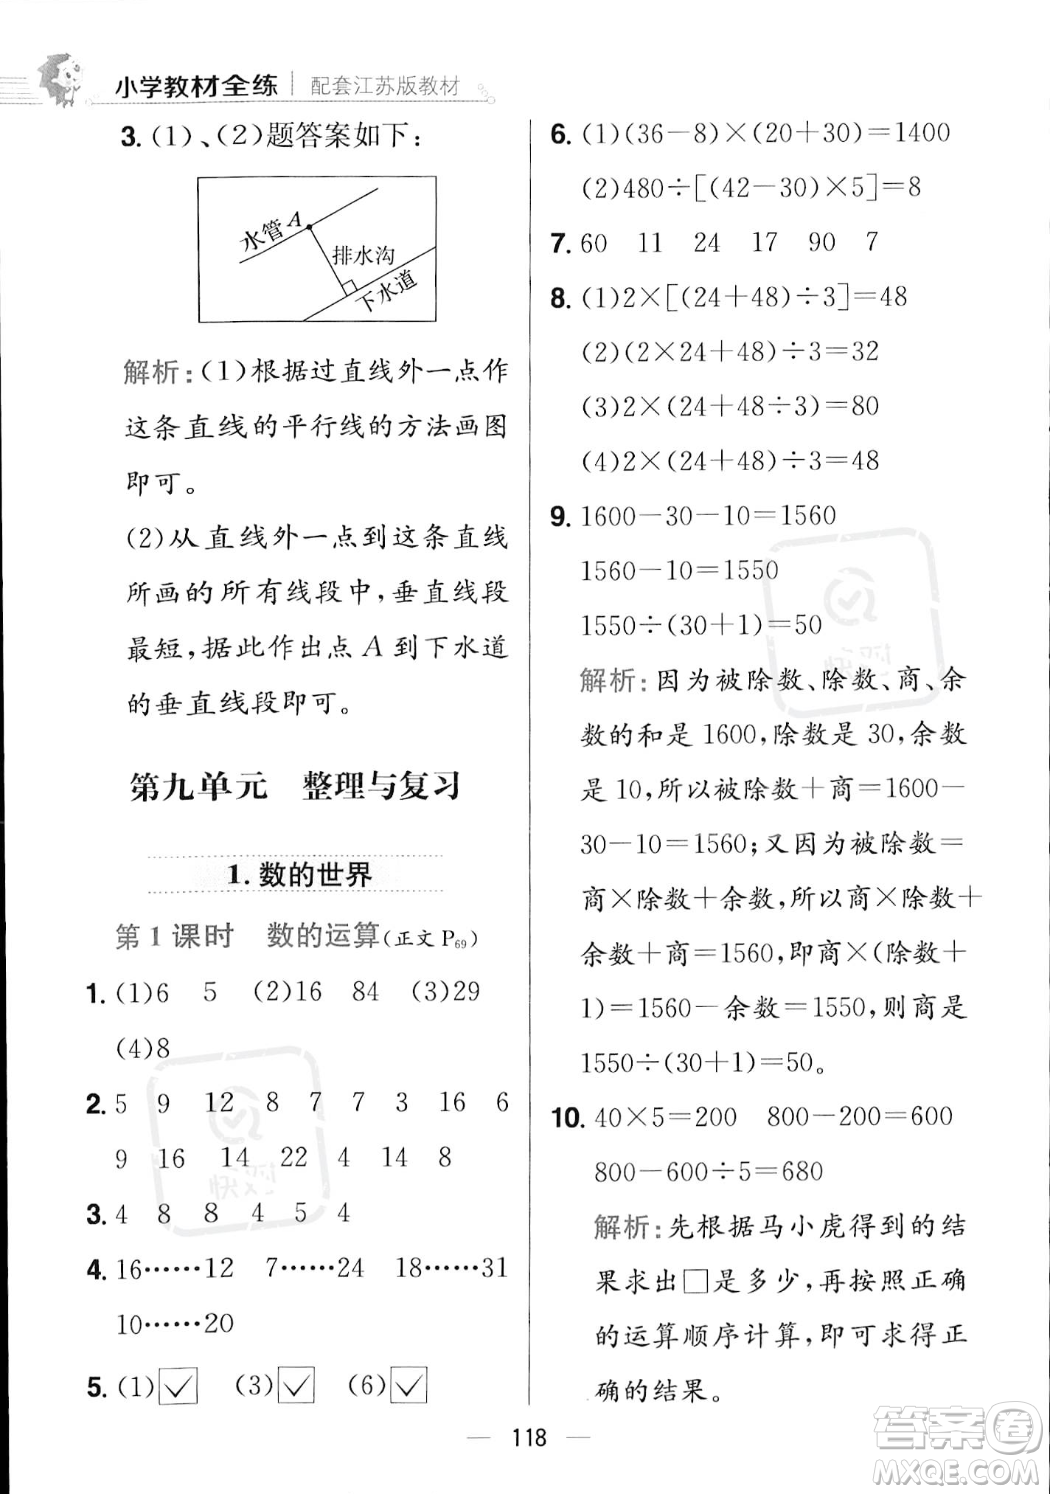 小学教材全练 配套江苏版教材
3. (1)、(2)题答案如下：
水管 A
排水沟
下水道
解析：(1)根据过直线外一点作
这条直线的平行线的方法画图
即可。
(2)从直线外一点到这条直线
所画的所有线段中，垂直线段
最短，据此作出点 A 到下水道
的垂直线段即可。
第九单元 整理与复习
1. 数的世界
第 1 课时 数的运算(正文 P69)
1. (1)6 5 (2)16 84 (3)29
(4)8
2. 5 9 12 8 7 7 3 16 6
9 16 14 22 4 14 8
3. 4 8 8 4 5 4
4. 16……12 7……24 18……31
10……20
5. (1)✓ (3)✓ (6)✓
6. (1)(36－8)×(20＋30)＝1400
(2)480÷[(42－30)×5]＝8
7. 60 11 24 17 90 7
8. (1)2×[(24＋48)÷3]＝48
(2)(2×24＋48)÷3＝32
(3)2×(24＋48÷3)＝80
(4)2×(24＋48)÷3＝48
9. 1600－30－10＝1560
1560－10＝1550
1550÷(30＋1)＝50
解析：因为被除数、除数、商、余
数的和是 1600，除数是 30，余数
是 10，所以被除数＋商＝1600－
30－10＝1560；又因为被除数＝
商×除数＋余数，所以商×除数＋
余数＋商＝1560，即商×(除数＋
1)＝1560－余数＝1550，则商是
1550÷(30＋1)＝50。
10. 40×5＝200 800－200＝600
800－600÷5＝680
解析：先根据马小虎得到的结
果求出□是多少，再按照正确
的运算顺序计算，即可求得正
确的结果。
118
快对
快对
答案卷
MXQE.COM